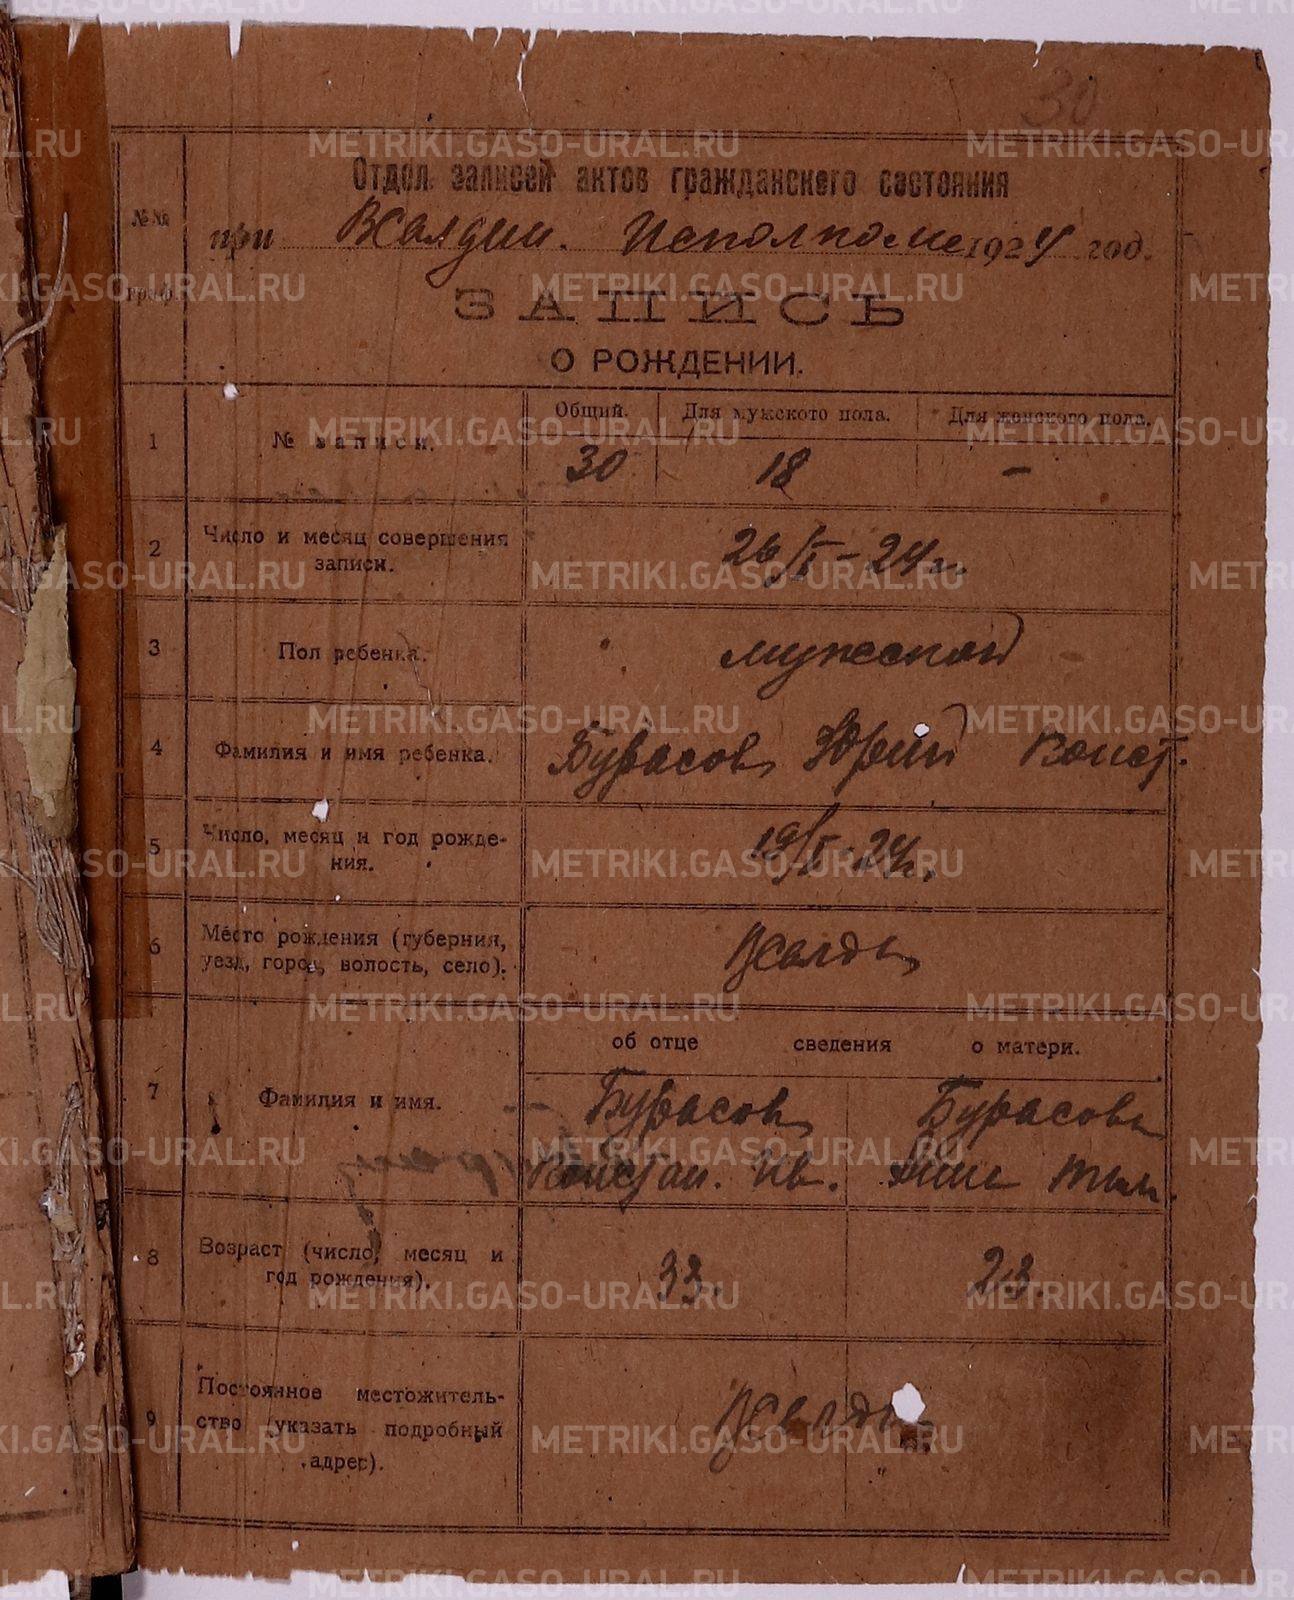 30
Отдел записей актов гражданского состояния
№№ граф.
при В Салдин. Исполкоме 1924 год.
ЗАПИСЬ
О РОЖДЕНИИ.
Общий. Для мужского пола. Для женского пола.
1 № записи. 30 18 —
2 Число и месяц совершения
записи. 26/I-24 г.
3 Пол ребенка. мужской
4 Фамилия и имя ребенка. Бурасов Юрий Конст.
5 Число, месяц и год рожде-
ния. 19/I-24 г.
6 Место рождения (губерния,
уезд, город, волость, село). В Салда
об отце сведения о матери.
7 Фамилия и имя. Бурасов Бурасова
Констан. Ив. Анна
8 Возраст (число, месяц и
год рождения). 33. 23.
9 Постоянное местожитель-
ство (указать подробный
адрес). В Салда
METRIKI.GASO-URAL.RU